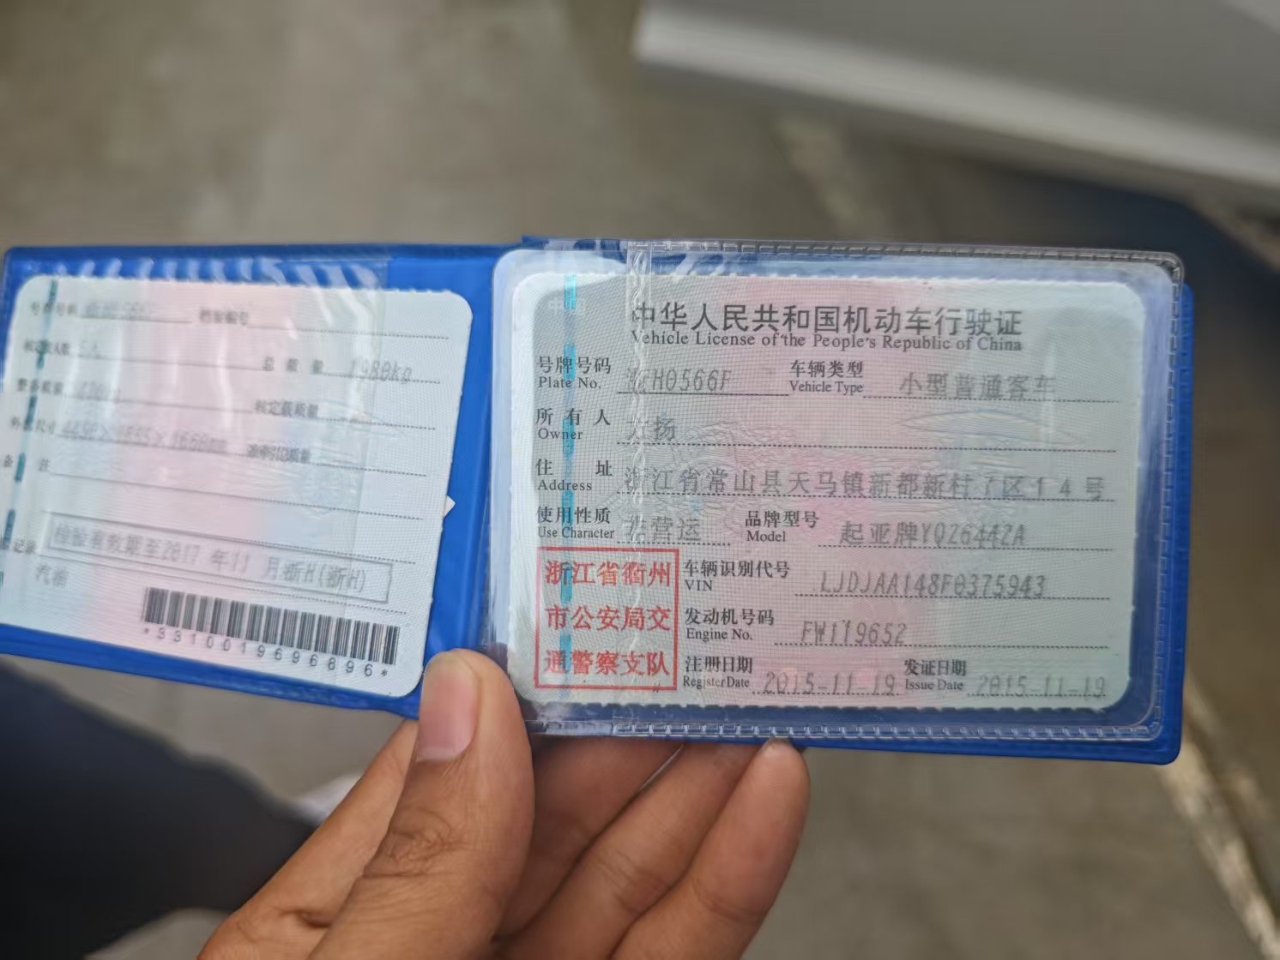 号牌号码
档案编号
总质量 1980kg
整备质量
核定载质量
外廓尺寸
准牵引总质量
备注
检验有效期至2017年11月浙H(浙H)
汽油
*3310019696896*
中华人民共和国机动车行驶证
Vehicle License of the People's Republic of China
号牌号码 浙H0566F 车辆类型 小型普通客车
Plate No. Vehicle Type
所有人 扬
Owner
住址 浙江省常山县天马镇新都新村7区14号
Address
使用性质 非营运 品牌型号 起亚牌YQZ6442A
Use Character Model
浙江省衢州
市公安局交
通警察支队
车辆识别代号 LJDJAA148F0375943
VIN
发动机号码 FW119652
Engine No.
注册日期 2015-11-19 发证日期 2015-11-19
Register Date Issue Date